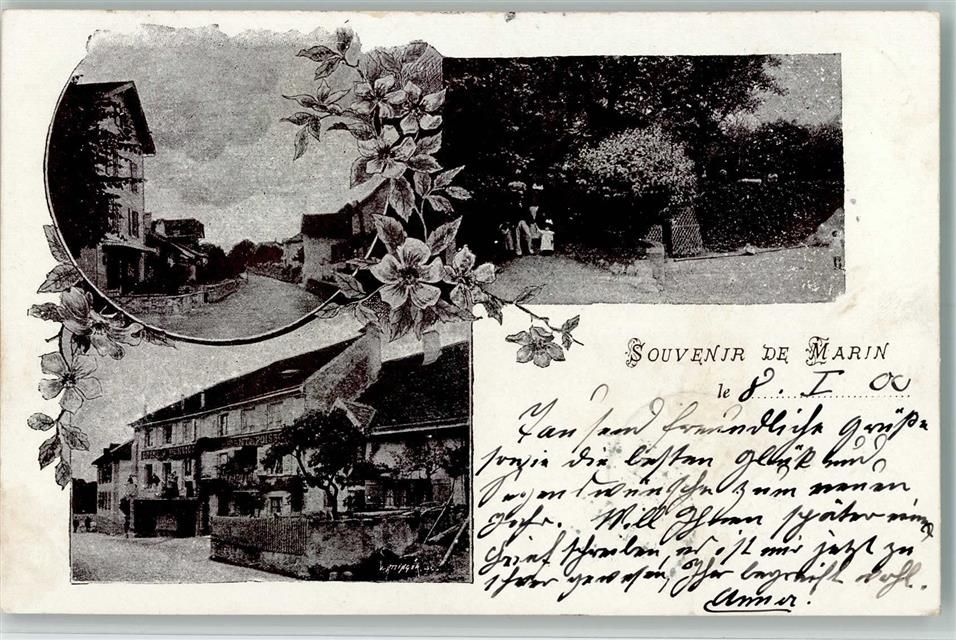 SOUVENIR DE MARIN
le 8. I 00
Tausend freundliche Grüße
sowie die besten Glück und
Segenswünsche zum neuen
Jahr. Will Ihnen später einen
Brief schreiben, es ist mir jetzt zu
schwer gewesen, Ihr begreift wohl.
Anna.